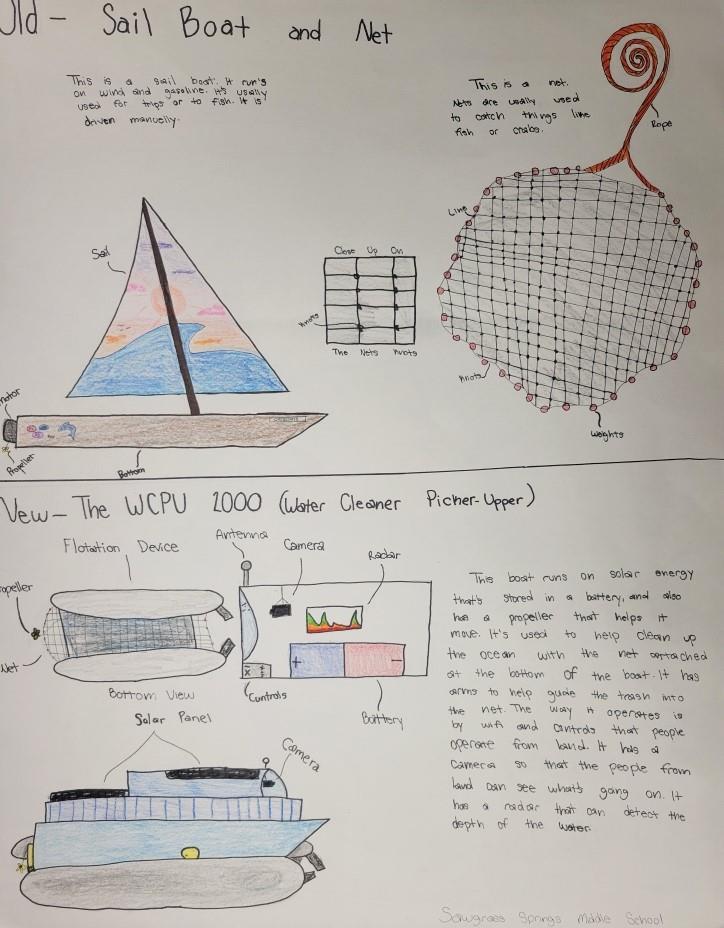 Old - Sail Boat and Net
This is a sail boat. It run's
on wind and gasoline. It's usually
used for trips or to fish. It is
driven manuelly.
This is a net.
Nets are usally used
to catch things like
fish or crabs.
Rope
Line
Sail
Close Up On
Knots
The Nets Knots
Knots
Weights
motor
Propeller
Bottom
New - The WCPU 2000 (Water Cleaner Picker-Upper)
Flotation Device
Antenna
Camera
Radar
propeller
Net
Bottom View
Controls
Battery
Solar Panel
Camera
This boat runs on solar energy
that's stored in a battery, and also
has a propeller that helps it
move. It's used to help clean up
the ocean with the net eattached
at the bottom of the boat. It has
arms to help guide the trash into
the net. The way it operates is
by wifi and controls that people
operate from land. It has a
camera so that the people from
land can see what's going on. It
has a radar that can detect the
depth of the water.
Sawgrass Springs Middle School